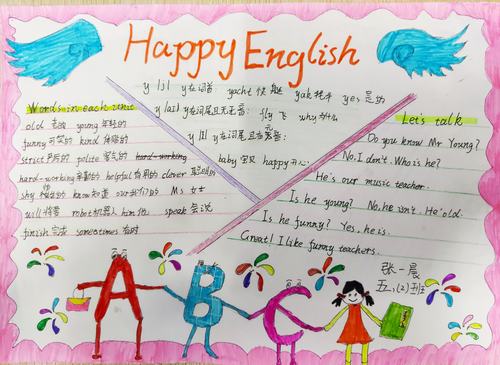 Happy English
y [j] y在词首 yacht 快艇 yak 牦牛 yes 是的
y [ai] y在词尾且无元音: fly 飞 why 为什么
y [I] y在词尾且为音:
baby 宝贝 happy 开心
Words in each unit
old 老的 young 年轻的
funny 可笑的 kind 体贴的
strict 严厉的 polite 客气的 hard-working
hard-working 辛勤的 helpful 有用的 clever 聪明的
shy 害羞的 know 知道 our 我们的 Ms 女士
will 将要 robot 机器人 him 他 speak 会说
finish 完成 sometimes 有时
Let's talk
Do you know Mr Young?
No, I don't. Who is he?
He's our music teacher.
Is he young? No, he isn't. He' old.
Is he funny? Yes, he is.
Great! I like funny teachers.
张一晨
五,(2)班
A B C